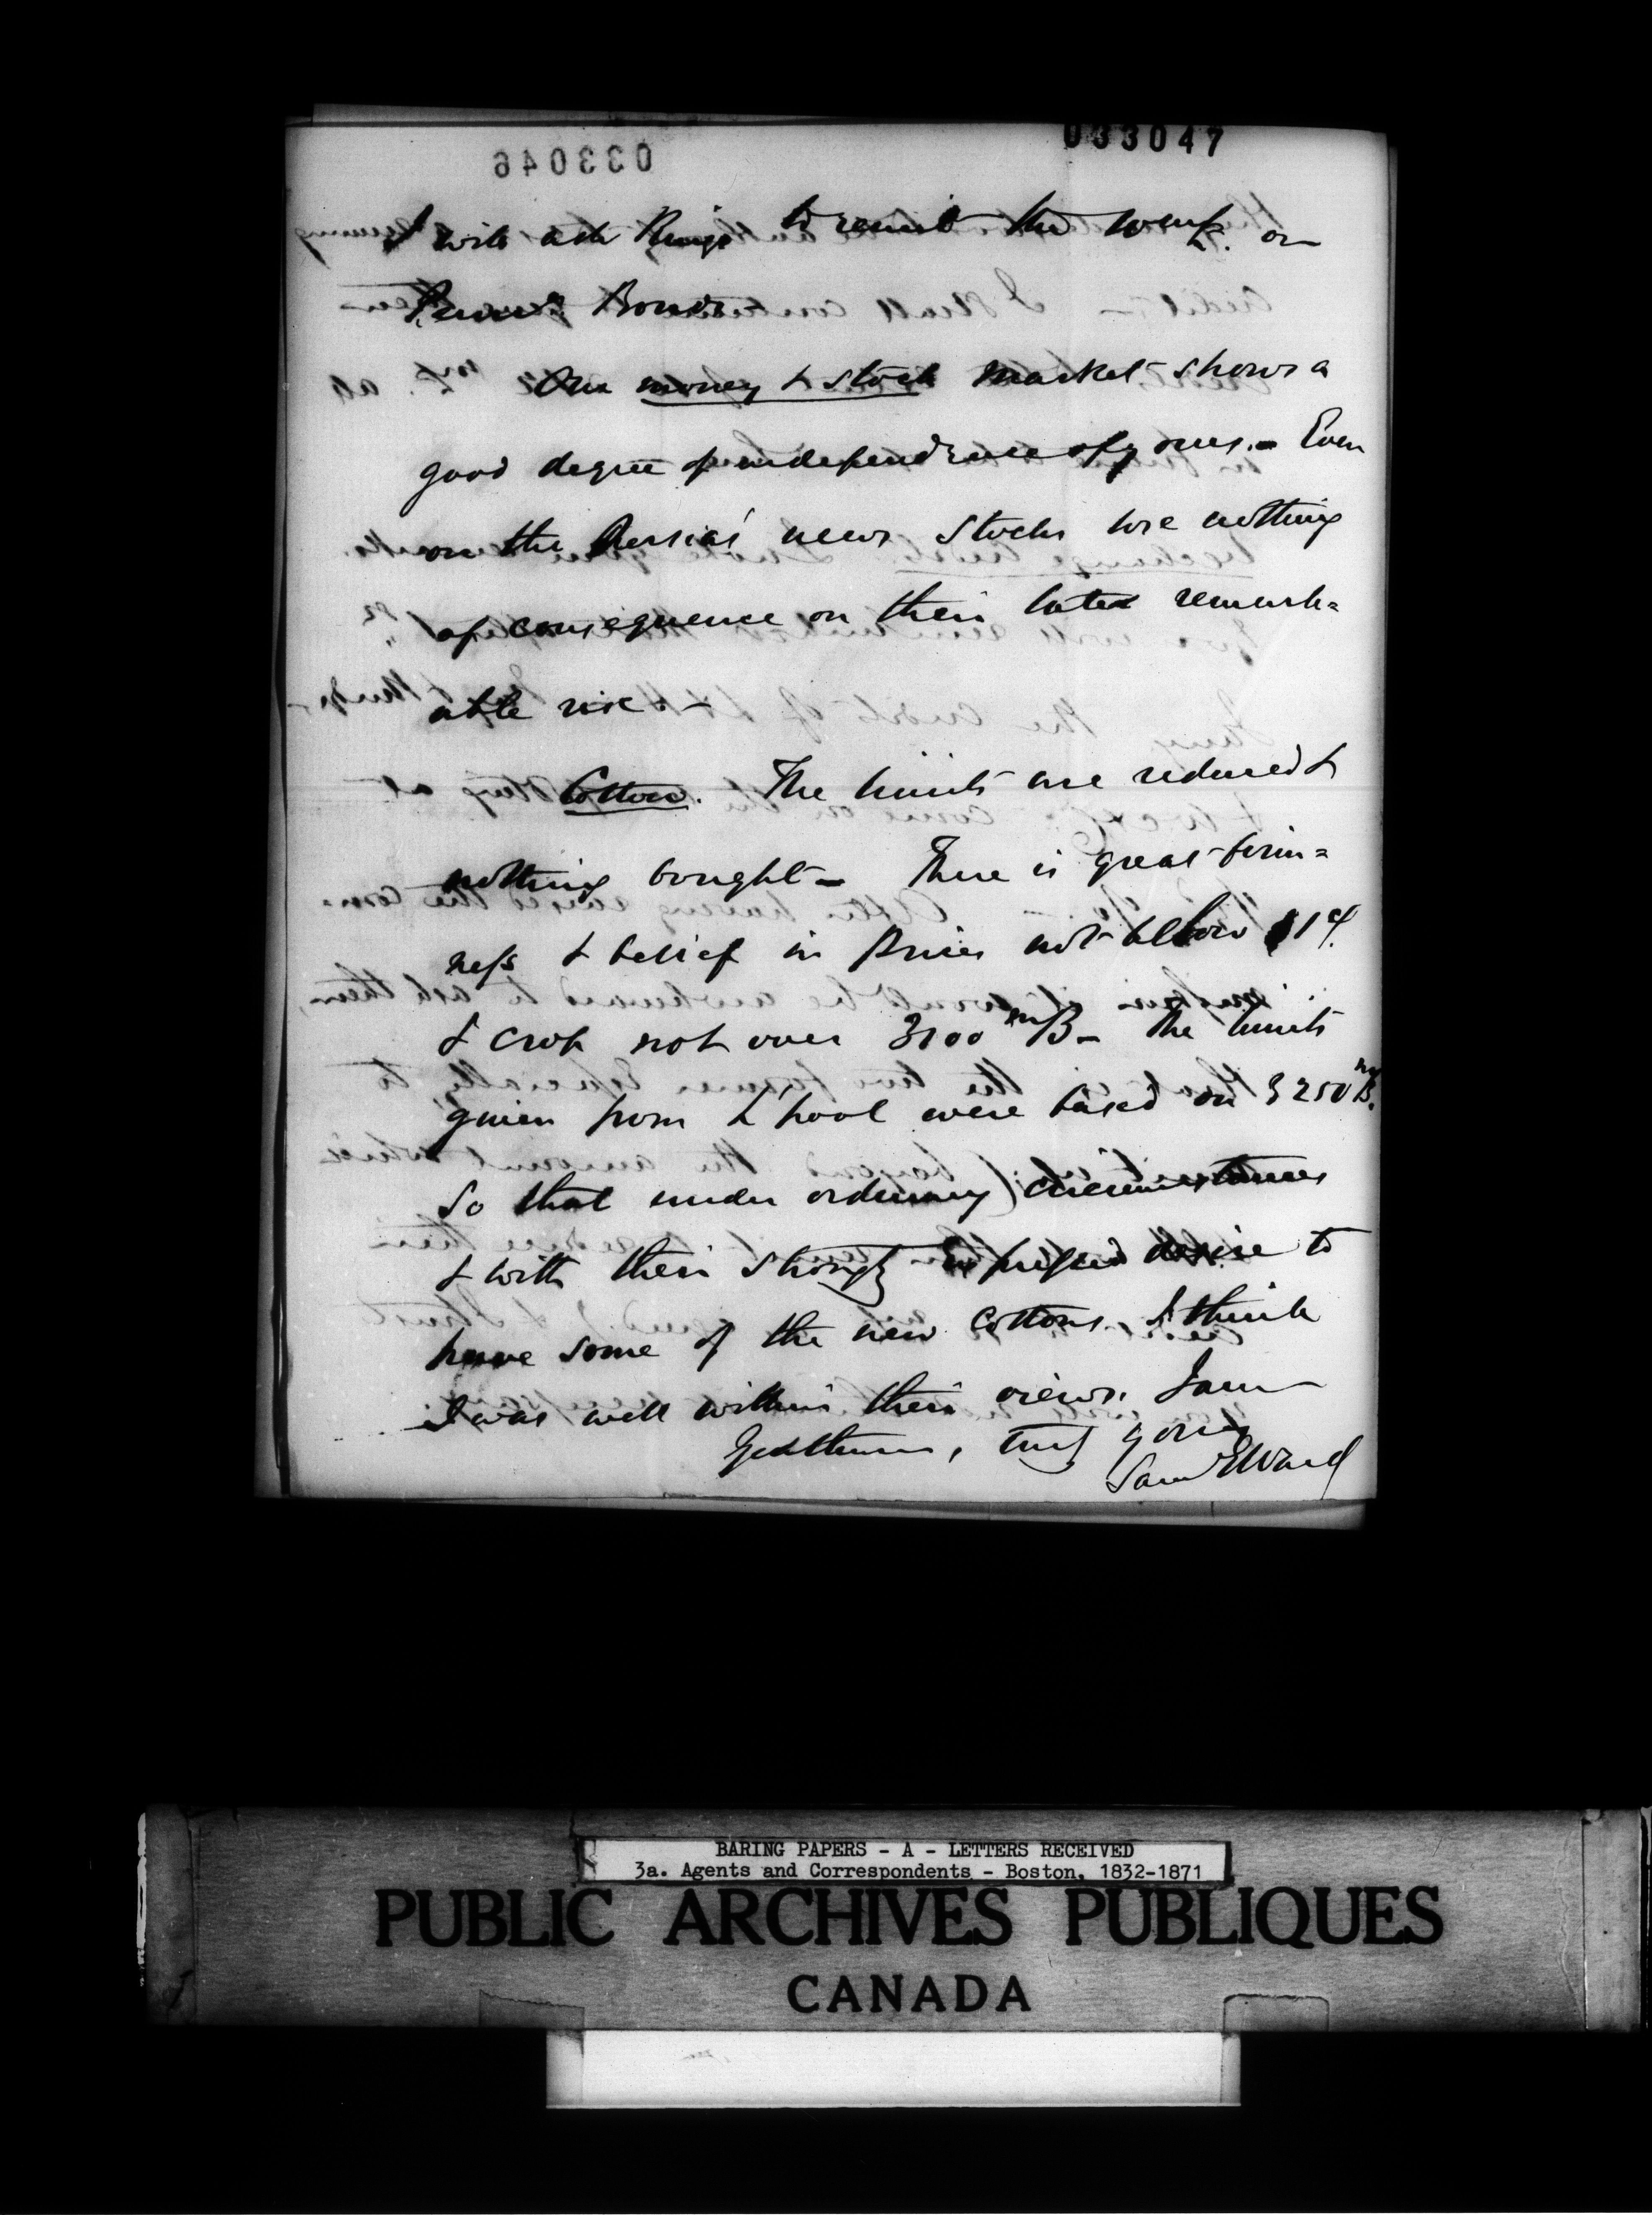 033047
033046
I will ask Kings to remit the Coup. on
Penn.ª Bonds.
Our money & stock market shows a
good degree of independence of yours. - Even
on the Persia's news stocks lose nothing
of consequence on their late remark=
able rise. -
Cotton. The limits are reduced &
nothing bought - There is great firm=
ness & belief in prices not below 11ᶜ/.
& crop not over 3100 ᵐ/B - The limits
given from L'pool were based on 3250 ᵐ/B.
So that under ordinary circumstances
& with their strongly expressed desire to
have some of the new cottons, I think
I was well within their views. I am
Gentlemen, truly yours
Sam G Ward
BARING PAPERS - A - LETTERS RECEIVED
3a. Agents and Correspondents - Boston, 1832-1871
PUBLIC ARCHIVES PUBLIQUES
CANADA